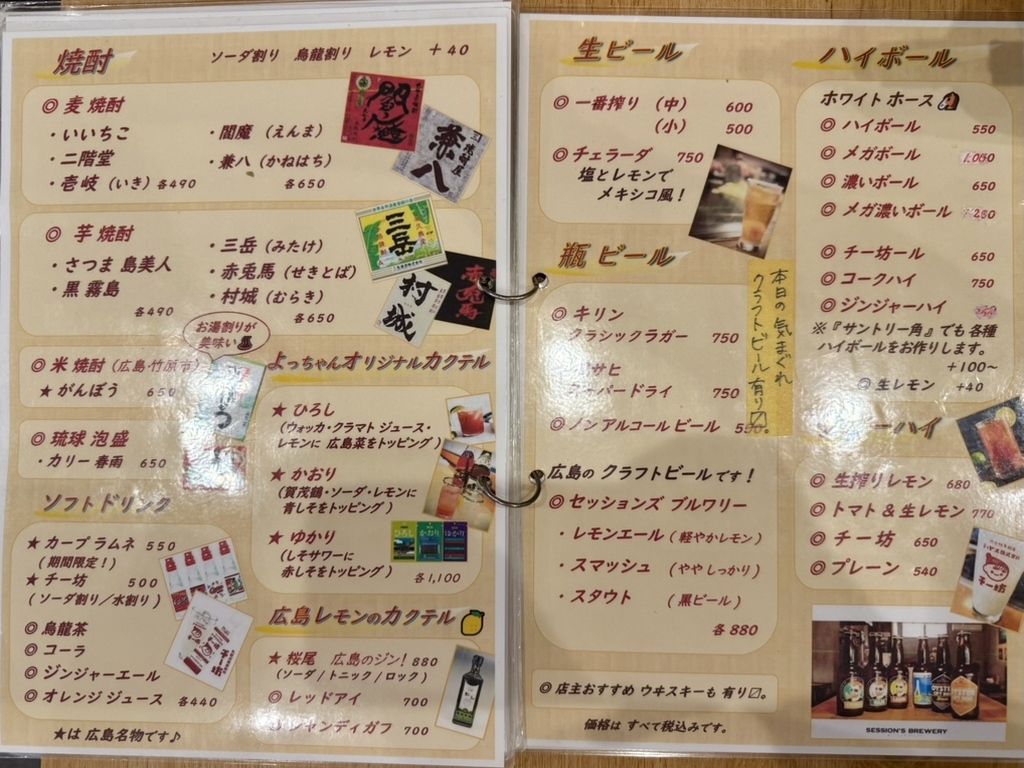 焼酎
ソーダ割り 烏龍割り レモン ＋40
◎ 麦 焼酎
・いいちこ
・二階堂
・壱岐（いき）各490
・閻魔（えんま）
・兼八（かねはち）
各650
兼八
◎ 芋 焼酎
・さつま 島美人
・黒 霧島
各490
・三岳（みたけ）
・赤兎馬（せきとば）
・村城（むらき）
各650
三岳
村城
赤兎馬
お湯割りが
美味い
◎ 米 焼酎（広島・竹原市）
★ がんぼう 650
◎ 琉球 泡盛
・カリー 春雨 650
ソフトドリンク
★ カープ ラムネ 550
（期間限定！）
★ チー坊 500
（ソーダ割り／水割り）
◎ 烏龍茶
◎ コーラ
◎ ジンジャーエール
◎ オレンジ ジュース 各440
★は 広島名物です♪
よっちゃんオリジナルカクテル
★ ひろし
（ウォッカ・クラマト ジュース・
レモンに 広島菜をトッピング）
★ かおり
（賀茂鶴・ソーダ・レモンに
青しそをトッピング）
★ ゆかり
（しそサワーに
赤しそをトッピング）
ひろし
かおり
ゆかり
各1,100
広島 レモンのカクテル
★ 桜尾 広島のジン！ 880
（ソーダ / トニック / ロック）
◎ レッドアイ 700
シャンディガフ 700
生ビール
◎ 一番搾り （中） 600
（小） 500
◎ チェラーダ 750
塩とレモンで
メキシコ風！
瓶 ビール
◎ キリン
クラシックラガー 750
アサヒ
スーパードライ 750
◎ ノンアルコール ビール
本日の 気まぐれ
クラフトビール 有り〼。
広島の クラフトビールです！
◎ セッションズ ブルワリー
・レモンエール（軽やかレモン）
・スマッシュ （ややしっかり）
・スタウト （黒ビール）
各 880
◎ 店主おすすめ ウヰスキーも 有り〼。
価格は すべて税込みです。
ハイボール
ホワイト ホース
◎ ハイボール 550
◎ メガボール 1,050
◎ 濃いボール 650
◎ メガ濃いボール
◎ チー坊ール 650
◎ コークハイ 750
◎ ジンジャーハイ
※『サントリー角』でも 各種
ハイボールをお作りします。
＋100～
◎ 生レモン ＋40
ーハイ
◎ 生搾りレモン 680
◎ トマト＆生レモン 770
◎ チー坊 650
◎ プレーン 540
チー坊
SESSION'S BREWERY